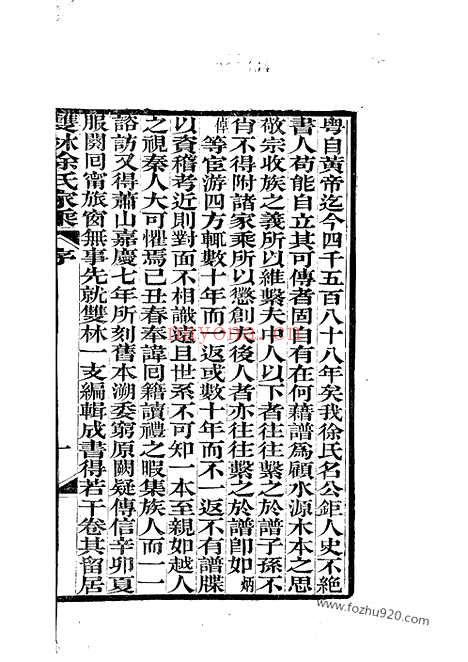 粵自黃帝迄今四千五百八十八年矣我徐氏名公鉅人史不絕
書人苟能自立其可傳者固自有在何藉譜爲顧水源木本之思
敬宗收族之義所以維繫夫中人以下者往往繫之於譜子孫不
肖不得附諸家乘所以懲創夫後人者亦往往繫之於譜卽如炳
倬等宦游四方輒數十年而一返或數十年而不一返不有譜牒
以資稽考近則對面不相識遠且世系不可知一本至親如越人
之視秦人大可懼焉己丑春奉諱回籍讀禮之暇集族人而一一
諮訪又得蕭山嘉慶七年所刻舊本溯委窮原闕疑傳信辛卯夏
服闋回甯旅窗無事先就雙林一支編輯成書得若干卷其留居
雙林徐氏家乘 序
一
nayona.cn
www.fozhu920.com